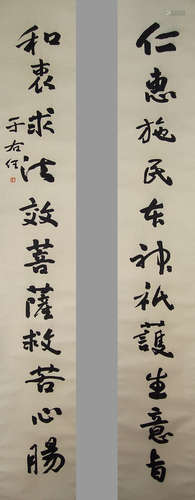 仁惠施民本神祇護生意旨
和衷求法效菩薩救苦心腸
于右任